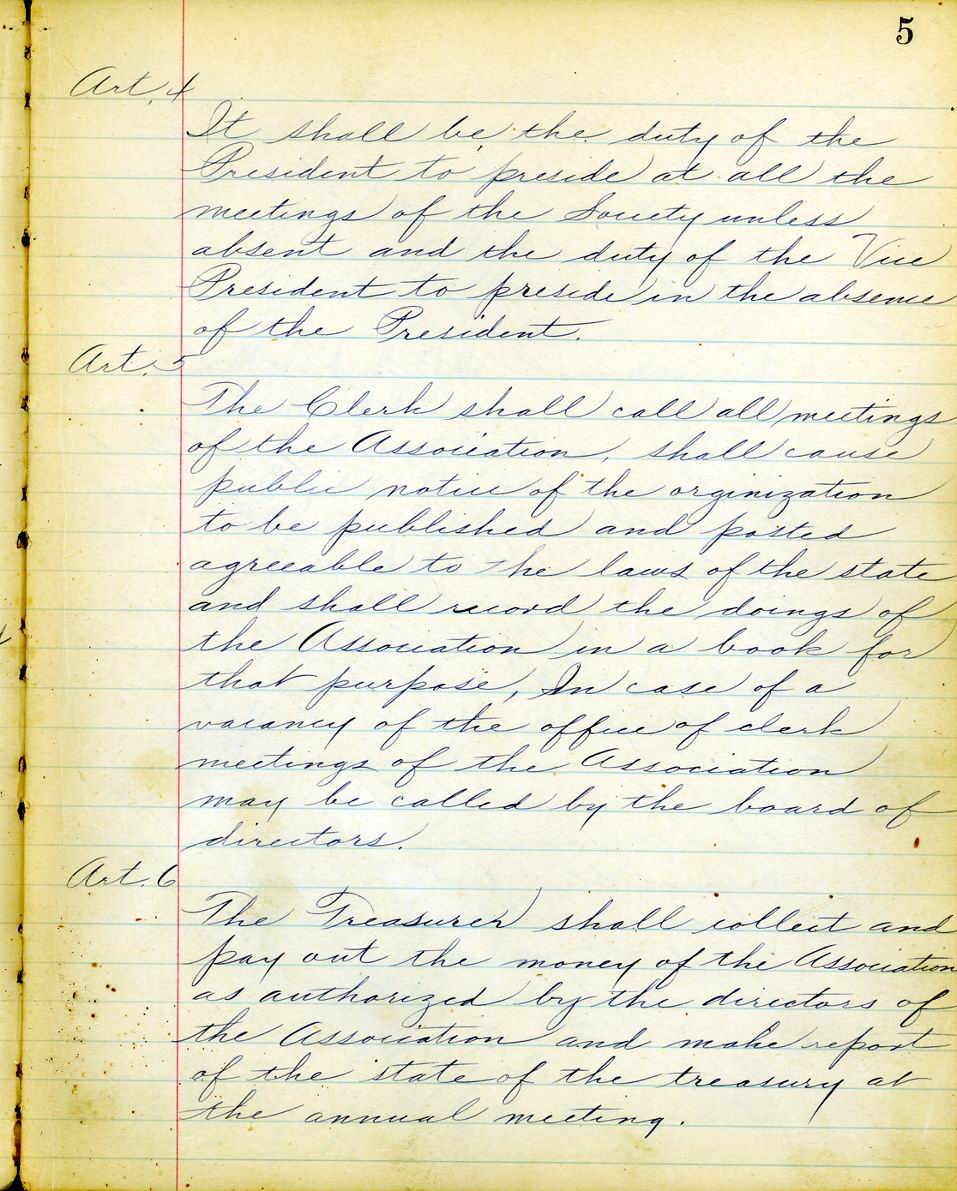 5
Art. 4
It shall be the duty of the
President to preside at all the
meetings of the Society unless
absent and the duty of the Vice
President to preside in the absence
of the President.
Art. 5
The Clerk shall call all meetings
of the Association, shall cause
public notice of the orginization
to be published and posted
agreeable to the laws of the state
and shall record the doings of
the Association in a book for
that purpose, In case of a
vacancy of the office of clerk
meetings of the Association
may be called by the board of
directors.
Art. 6
The Treasurer shall collect and
pay out the money of the Association
as authorized by the directors of
the Association and make report
of the state of the treasury at
the annual meeting.